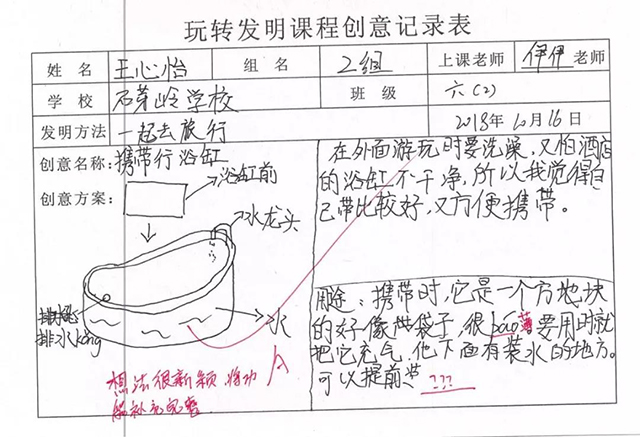 玩转发明课程创意记录表
姓 名 王心怡 组 名 2组 上课老师 伊伊老师
学 校 石芽岭学校 班 级 六(2)
发明方法 一起去旅行 2018年10月16日
创意名称:携带行浴缸
创意方案:
浴缸前
水龙头
排水kǒng
水
在外面游玩时要洗澡,又怕酒店
的浴缸不干净,所以我觉得自
己带比较好,又方便携带。
用途:携带时,它是一个方地块
的好像袋子,很báo薄要用时就
把它充气,他下面有装水的地方。
可以提前 ???
想法很新颖,将功
能补充完整
A